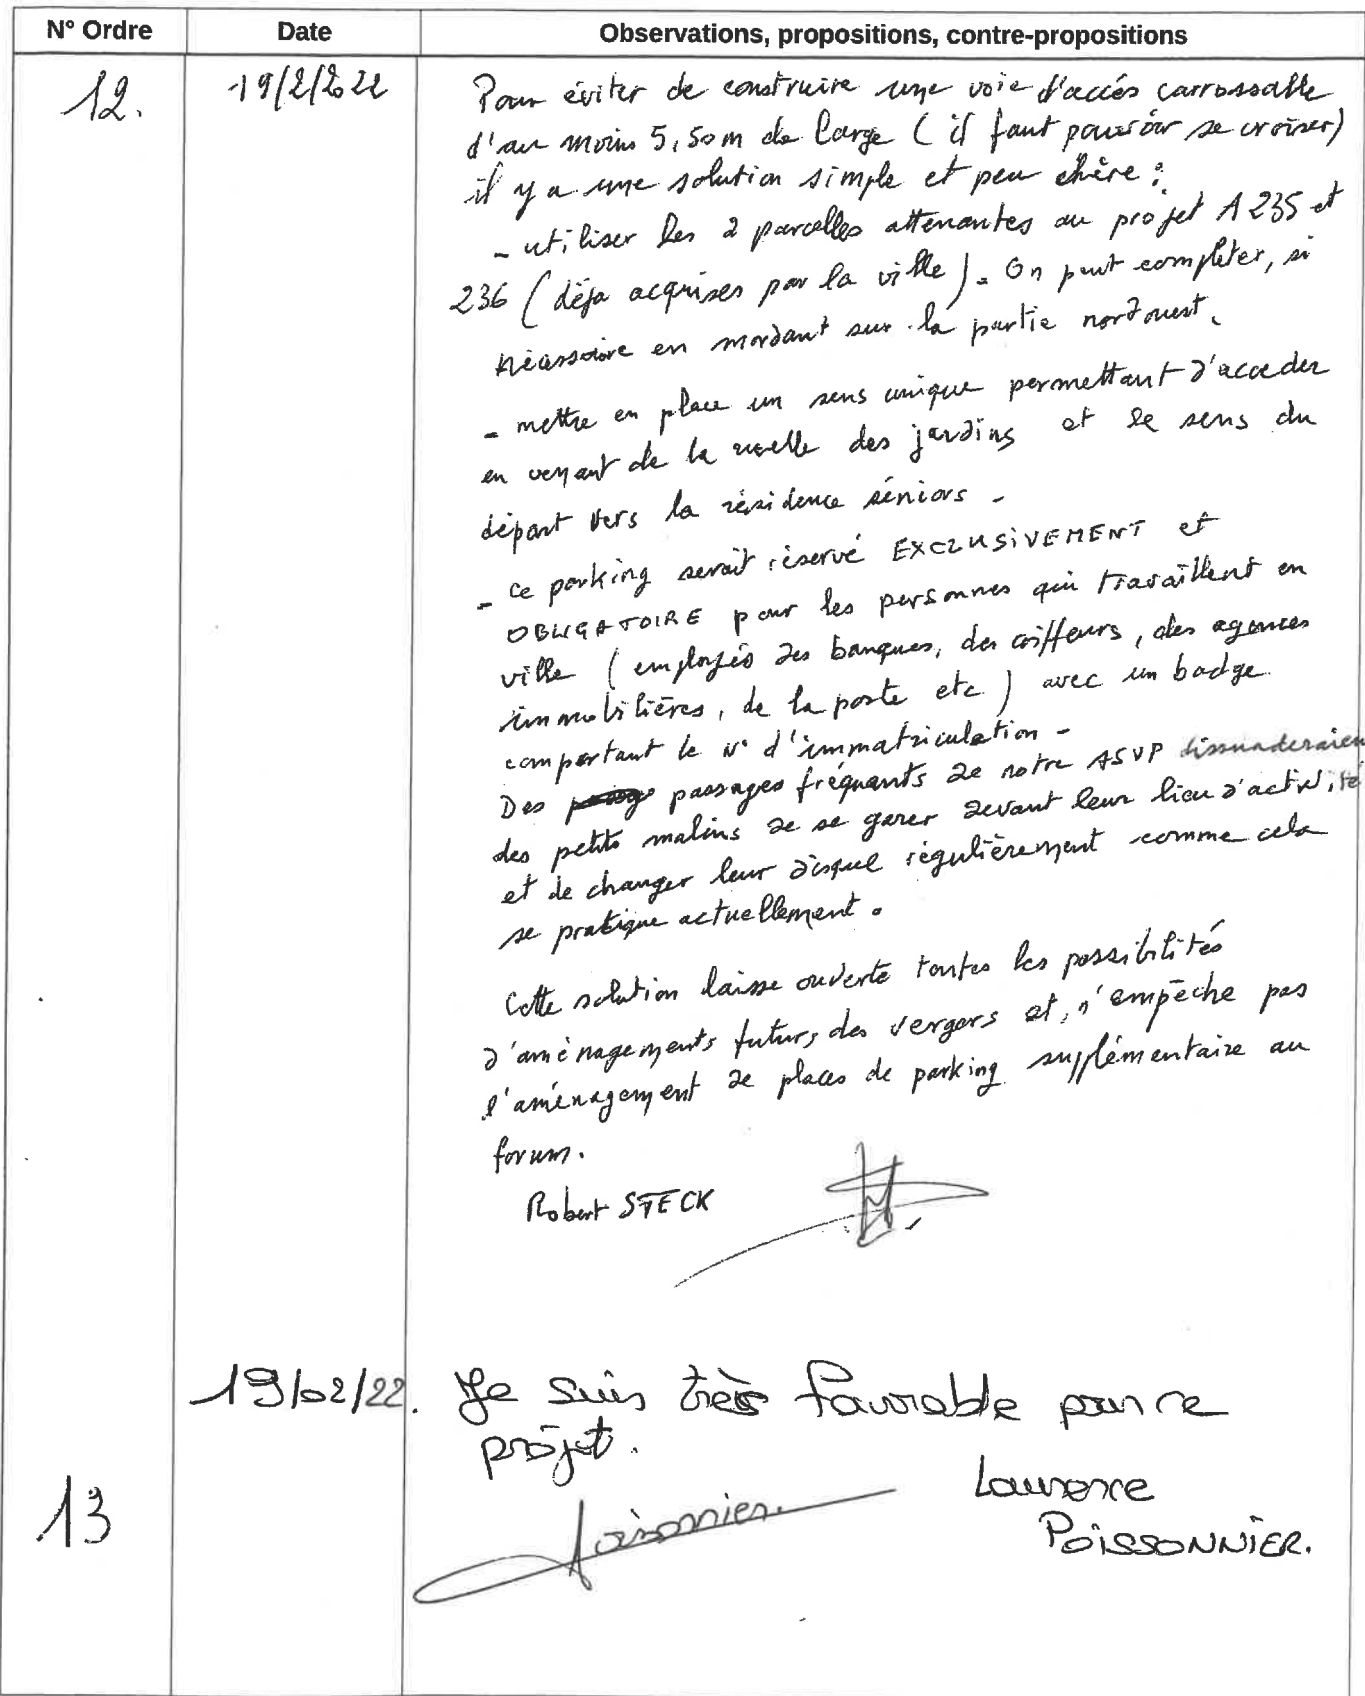 N° Ordre Date Observations, propositions, contre-propositions
12. 19/2/2022 Pour éviter de construire une voie d'accés carrossable
d'au moins 5,50m de large (il faut pouvoir se croiser)
il y a une solution simple et peu chère :
- utiliser les 2 parcelles attenantes au projet A 235 et
236 (déja acquises par la ville). On peut completer, si
nécessaire en mordant sur la partie nord ouest.
- mettre en place un sens unique permettant d'acceder
en venant de la ruelle des jardins et le sens du
départ vers la résidence séniors -
- ce parking serait réservé EXCLUSIVEMENT et
OBLIGATOIRE pour les personnes qui travaillent en
ville (employés des banques, des coiffeurs, des agences
immobilières, de la poste etc) avec un badge
comportant le N° d'immatriculation -
Des passages fréquants de notre ASVP dissuaderaien
des petits malins de se garer devant leur lieu d'activité
et de changer leur disque régulièrement comme cela
se pratique actuellement.
Cette solution laisse ouverte toutes les possibilités
d'aménagements futurs des vergers et, n'empêche pas
l'aménagement de places de parking supplémentaire au
forum.
Robert STECK
19/02/22. Je suis très favorable pour ce
projet.
13 Laurence
Poissonnier.
POISSONNIER.